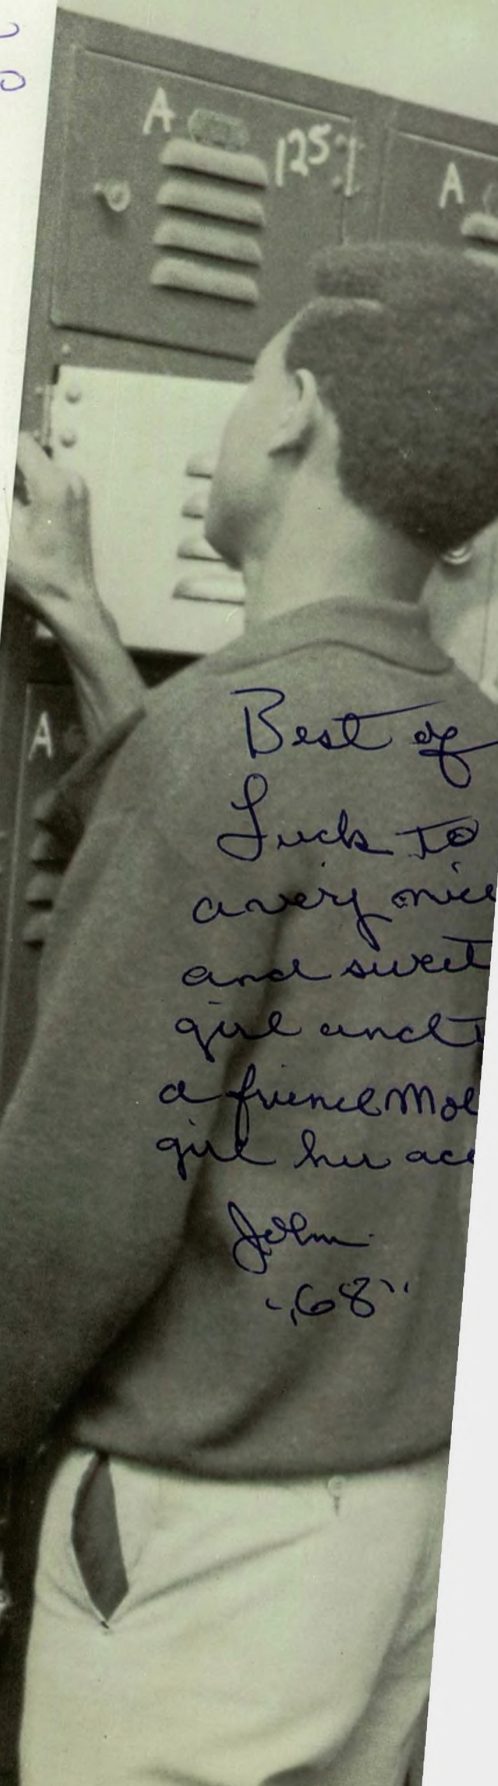 A 125
A
A
Best of
Luck to
a very nice
and sweet
girl and
a friend
girl her
John
"68"